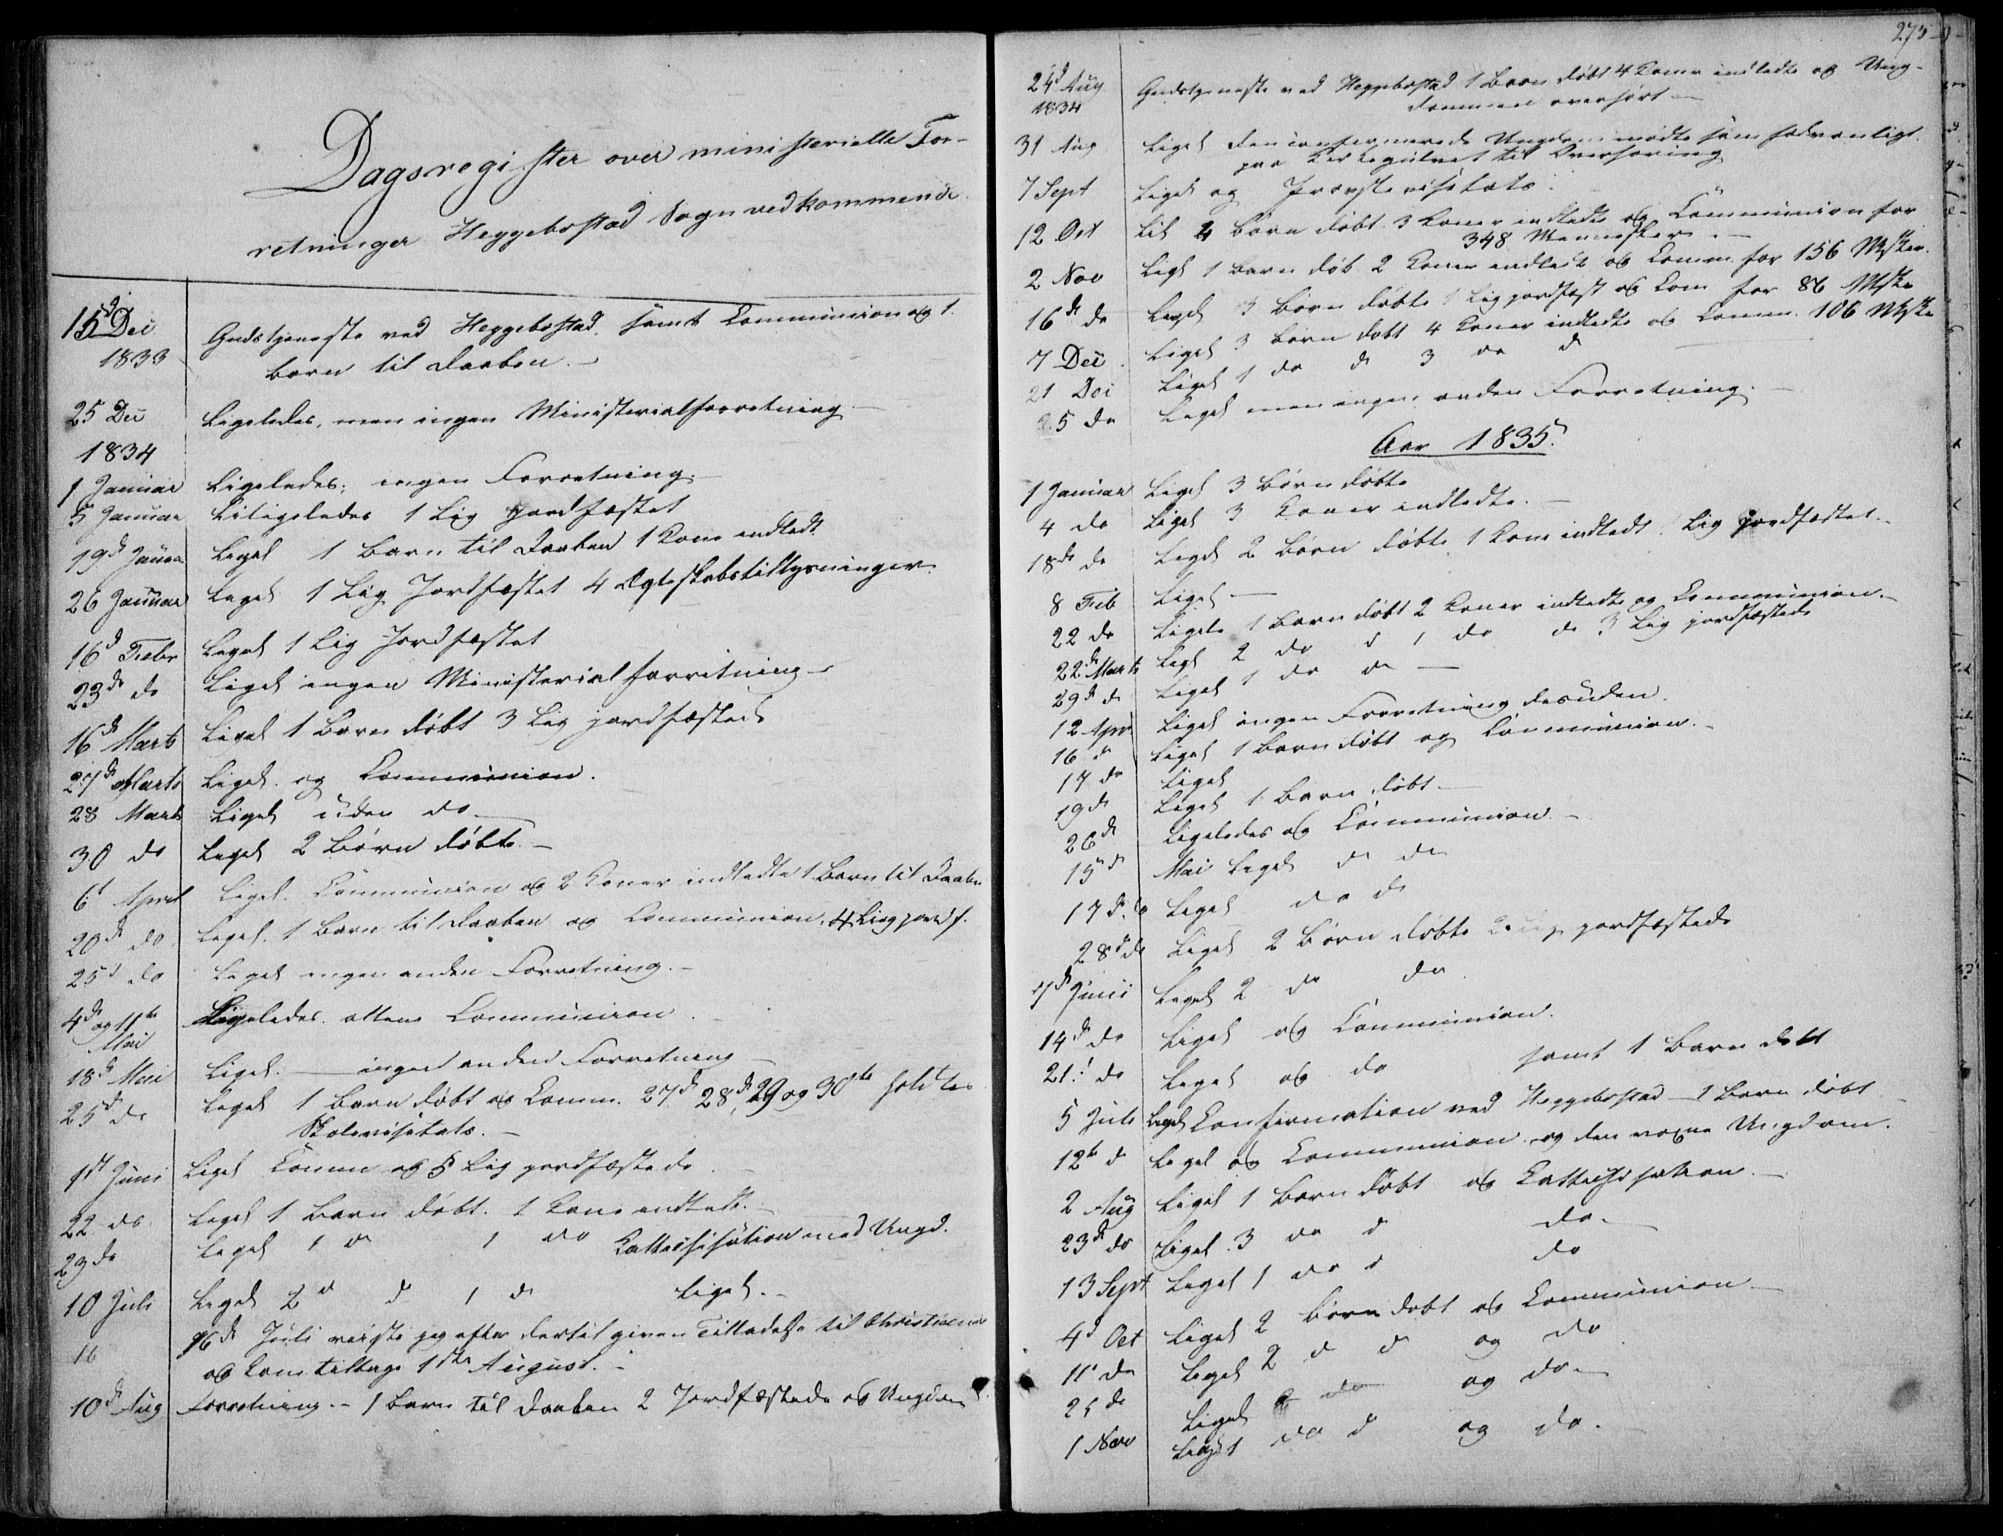 Dagsregister over ministerielle For-
retninger Heggebostad Sogn vedkommende.
15d Dec 1833 Gudstjeneste ved Heggebostad, samt Communion og 1.
Barn til Daaben. —
25 Dec Ligeledes, men ingen Ministerialforretning —
1834
1 Januar Ligeledes; ingen Forretning
5 Januar Ligeledes 1 Lig Jordfæstet
19d Januar Liget 1 Barn til Daaben 1 Kone indledt
26 Januar Liget 1 Lig Jordfæstet 4 Ægteskabstillysninger.
16d Febr Liget 1 Lig Jordfæstet
23de do Liget ingen Ministerialforretning —
16de Marts Liget 1 Barn døbt 3 Lig jordfæstede
27de Marts Liget og Communion.
28 Marts Liget uden do —
30 do Liget 2 Børn døbte. —
6t April Liget. Communion og 2 Koner indledte 1 Barn til Daaben
20de do Liget. 1 Barn til Daaben og Communion, 4 Lig jordf.
25d do Liget ingen anden Forretning. —
4de og 11te Mai Ligeledes. altens Communion. —
18de Mai Liget. — ingen anden Forretning —
25de do Liget 1 Barn døbt og Comm. 27de 28de, 29 og 30te holdtes
Skolevisitats. —
1st Juni Liget Comm og 5 Lig jordfæstede —
22 do Liget 1 Barn døbt. 1 Kone indledt. —
29 do Liget 1 d 1 do Kattechisation med Ungd.
10 Juli Liget 2 d d 1 d Liget. —
16 16de Juli reiste jeg efter dertil given Tilladelse til Christiania
og kom tilbage 1ste August. —
10de Aug Forretning — 1 Barn til Daaben 2 Jordfæstede og Ungdom
275
24d Aug 1834 Gudstjeneste ved Heggebostad 1 Barn døbt 4 Koner indledte og Ung-
dommen overhørt —
31 Aug Liget den confirmerede Ungdom mødte som sædvanligt
paa Kirkegulvet til Overhøring
7 Sept Liget og Provstevisitats.
12 Oct Lil 4 Børn døbt 3 Koner indledte og Communion for
348 Mennesker. —
2 Nov Ligt 1 Barn døb. 2 Koner indledt og Comm. for 156 Msker.
16de do Liget 3 Børn døbte 1 Lig jordfæst og Com for 86 Mske
7 Dec Liget 3 Børn døbt 4 Koner indledte og Comm. 106 Mske
21 Dec Liget 1 do d 3 do d
25 do Liget men ingen anden Forretning. —
Aar 1835.
1 Januar Liget 3 Børn døbte
4 do Liget 3 Koner indledte. —
18de do Liget 2 Børn døbte 1 Kone indledt Lig jordfæstet. —
8 Feb Liget —
22 do Ligele 1 Barn døbt 2 Koner indledte og Communion. —
22de Marts Ligt 2 do d 1 do do 3 Lig jordfæstede
29de d Liget 1 do do —
12 Apr Liget ingen Forretning desuden.
16 d Liget 1 Barn døbt og Communion. —
17 do Liget
19 do Liget 1 Barn døbt —
26 d Ligeledes og Communion —
15 d Mai Liget d do
17de do Liget do d
28d do Liget 2 Børn døbte jordfæstede
7de Junii Liget 2 do do
14de do Liget og Communion.
21t do Liget og do samt 1 Barn døbt
5 Juli Liget Confirmation ved Heggebostad — 1 Barn døbt —
12te d Liget og Communion og den voxne Ungdom.
2 Aug Liget 1 Barn døbt og Kattechisation. —
23de do Liget. 3 do d do. —
13 Sept Liget 1 do d do
4d Oct Liget 2 Børn døbt og Communion —
11t do Liget 2 d d og do
25 do Liget 2 do og do —
1 Nov Liget 1 do d og do.